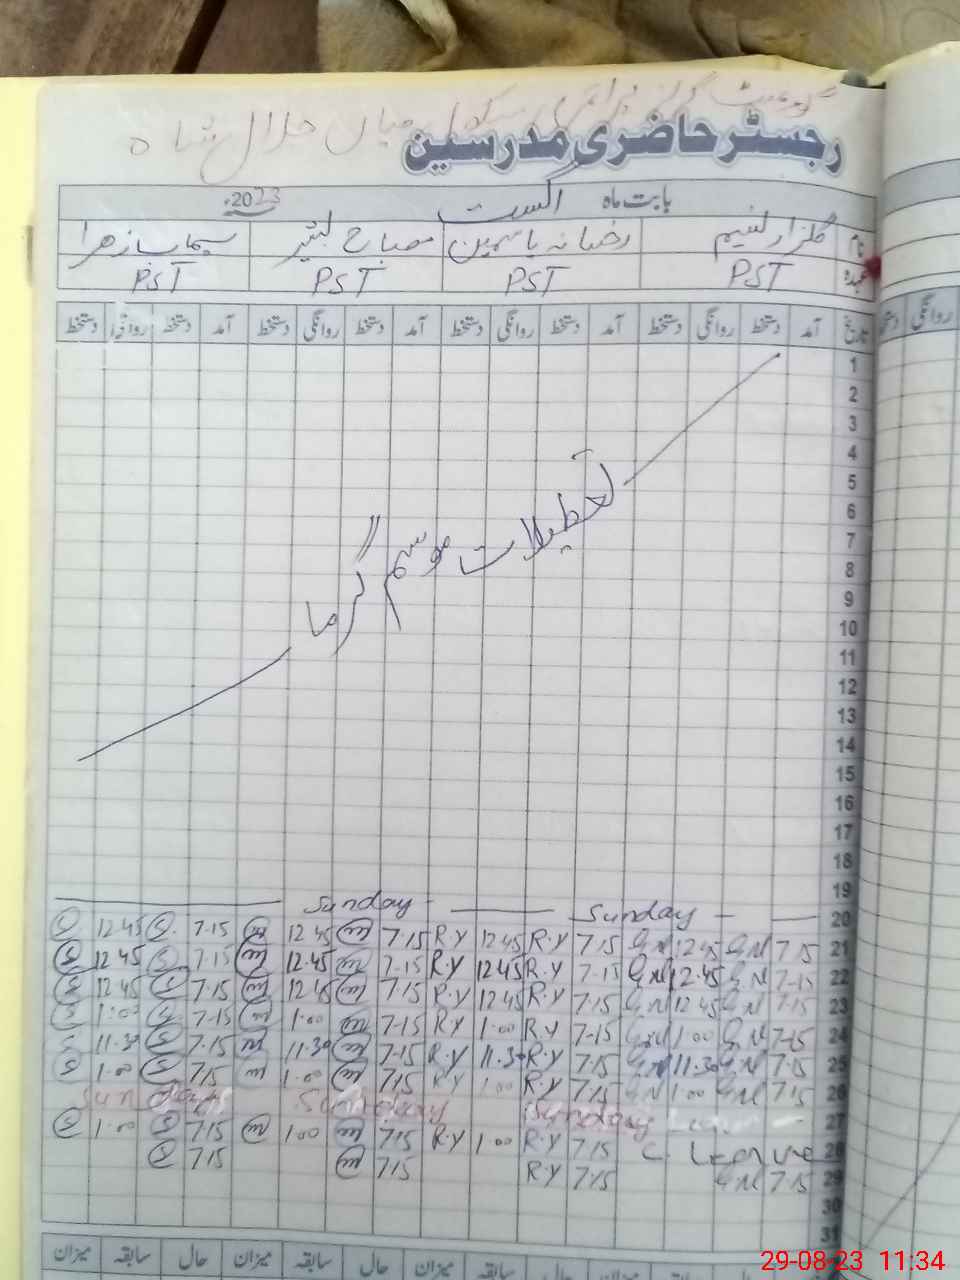 گورنمنٹ گرلز پرائمری سکول میاں جلال شاہ
رجسٹر حاضری مدرسین
بابت ماہ اگست 2023ء
نام گلزار نسیم رضیانہ یاسمین مصباح بشیر سیماب زھرا
عہدہ PST PST PST PST
تاریخ آمد دستخط روانگی دستخط آمد دستخط روانگی دستخط آمد دستخط روانگی دستخط آمد دستخط روانگی دستخط
1
2
3
4
5
6
7
8
9
10
11
12
13
14
15
16
17
18
19
تعطیلات موسم گرما
20 Sunday Sunday
21 7-15 G.N 12.45 G.N 7.15 R.Y 12.45 R.Y 7.15 12.45 7.15 12.45
22 7-15 G.N 12.45 G.N 7-15 R.Y 12.45 R.Y 7-15 12.45 7.15 12.45
23 7-15 G.N 12.45 G.N 7.15 R.Y 12.45 R.Y 7.15 12.45 7.15 12.45
24 7-15 G.N 1.00 G.N 7-15 R.Y 1.00 R.Y 7-15 1.00 7-15 1.00
25 7.15 G.N 11.30 G.N 7.15 R.Y 11.30 R.Y 7-15 11.30 7.15 11.30
26 7.15 G.N 1.00 G.N 7.15 R.Y 1.00 R.Y 7.15 1.00 7.15 1.00
27 Sunday Sunday Sunday
28 C. Leave 7.15 R.Y 1.00 R.Y 7.15 1.00 7.15 1.00
29 7.15 G.N 7.15 R.Y 7.15 7.15
30
31
میزان سابقہ حال میزان سابقہ حال میزان سابقہ حال
روانگی
29-08-23 11:34